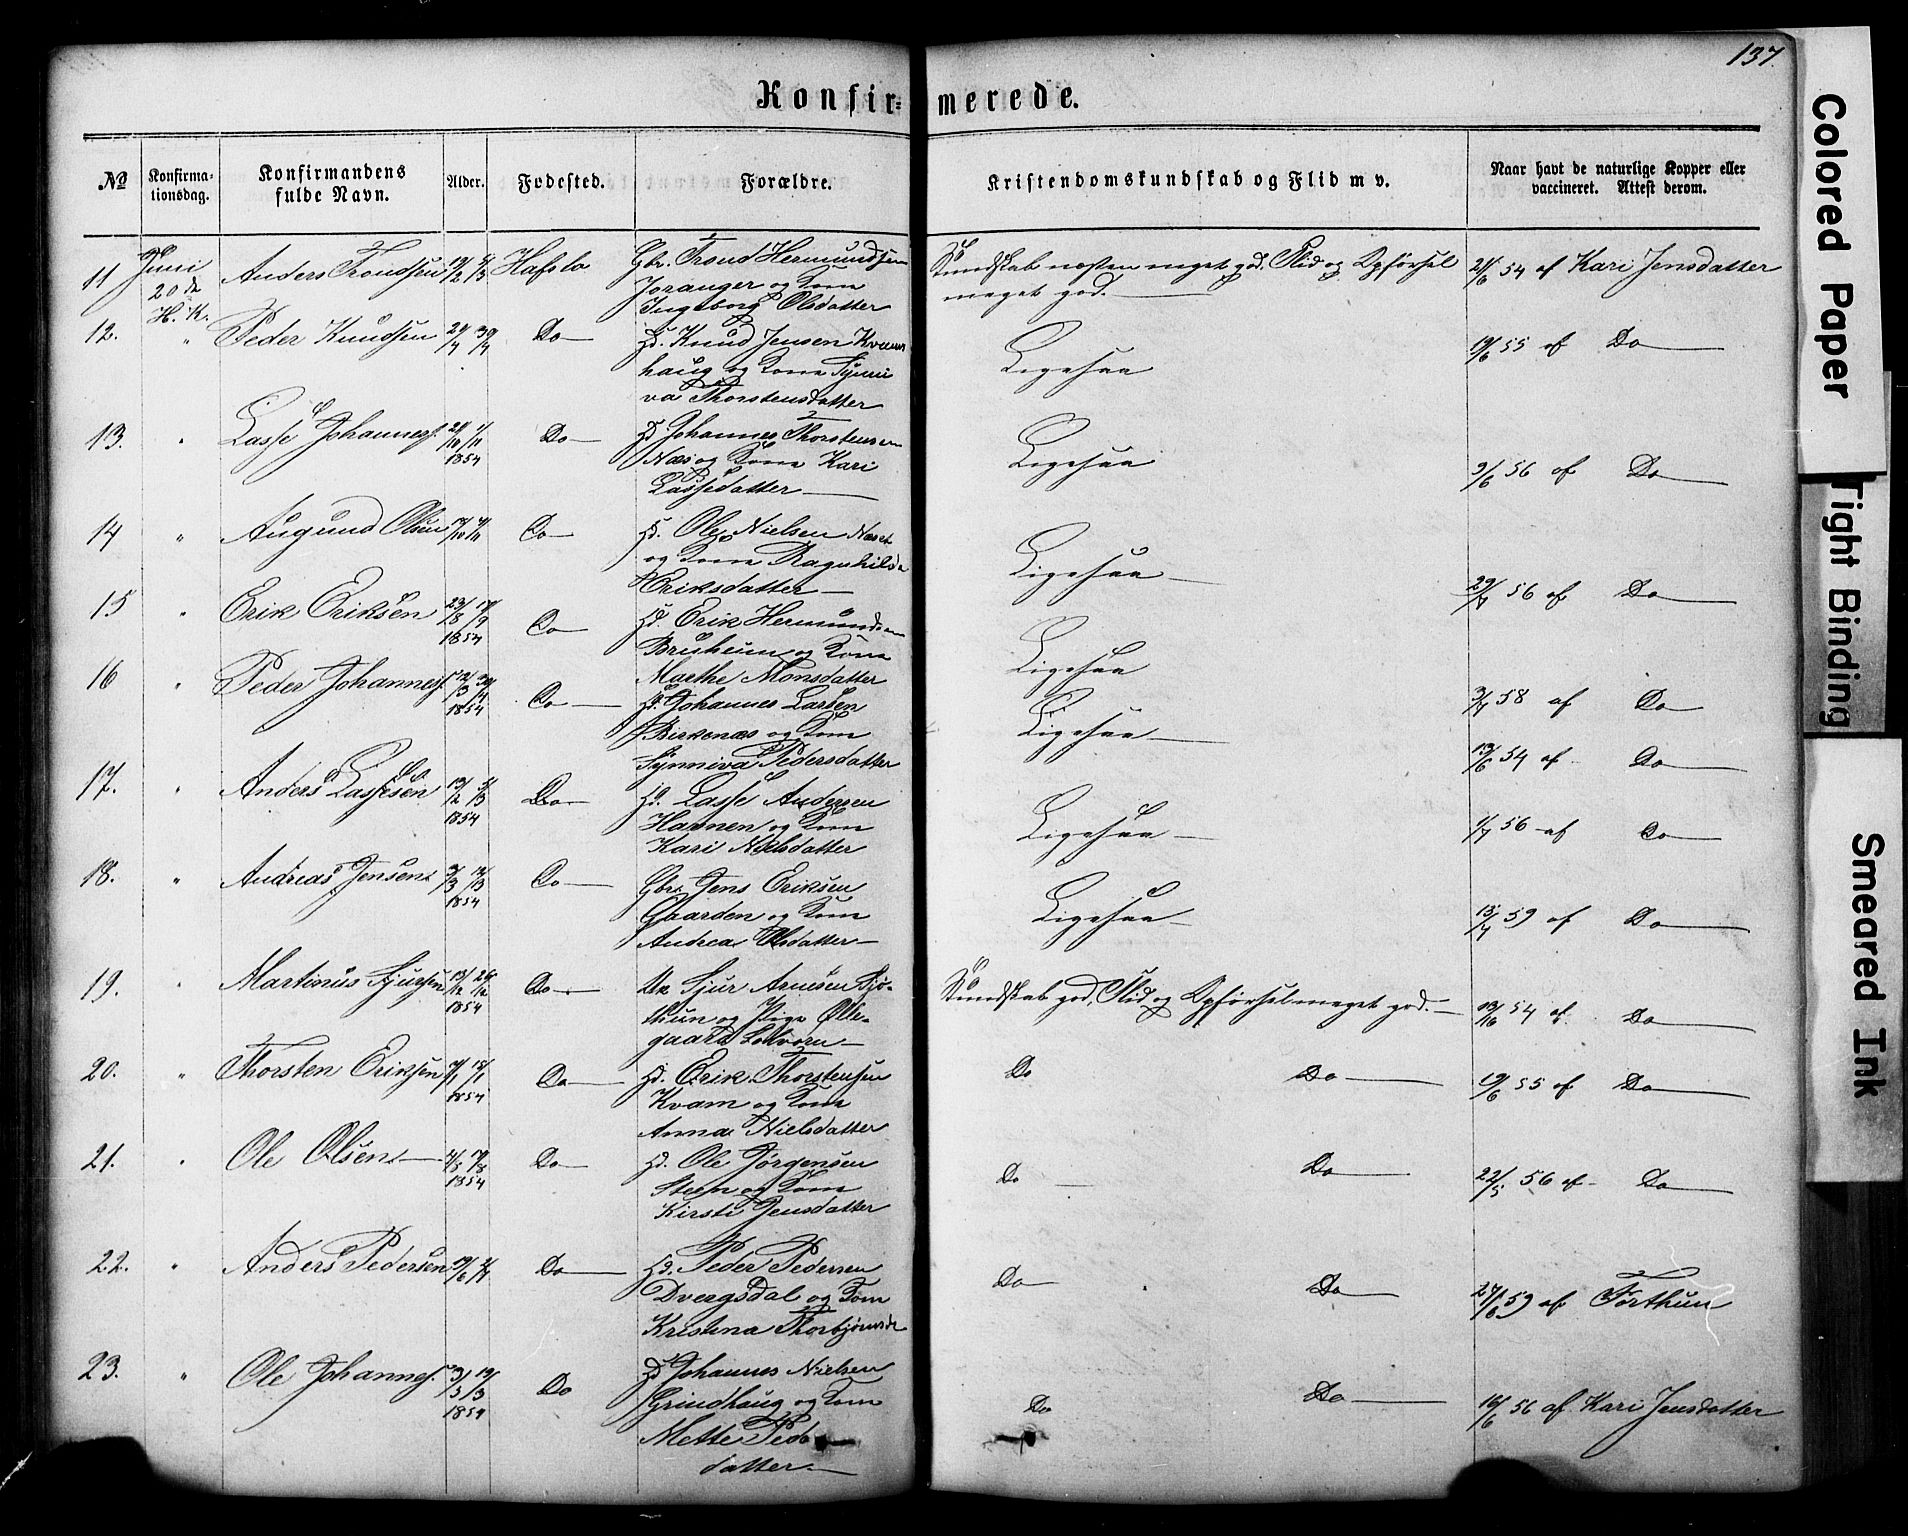 137.
Konfir= merede.
No
Konfirma-
tionsdag.
Konfirmandens
fulde Navn.
Alder.
Fødested.
Forældre.
Kristendomskundskab og Flid m v.
Naar havt de naturlige Kopper eller
vaccineret. Attest derom.
11 Juni 20de H. K. Anders Trondsen 19/2 5/3 Hafslo Gbr. Trond Hermundsen
Joranger og Kone
Ingeborg Olsdatter
Kundskab næsten meget god. Flid og Opførsel
meget god.
21/6 54 af Kari Jensdatter
12. " Peder Knudsen 24/4 30/4 Do Hd. Knud Jensen Kvams
haug og Kone Synni
va Thorstensdatter
Ligesaa
19/6 55 af Do
13. " Lasse Johannes. 1854 Do Hd Johannes Thorstensen
Næs og Kone Kari
Lassedatter
Ligesaa
9/6 56 af Do
14 " Augund Olsen Do Hd. Ole Nielsen Næset
og Kone Ragnhilda
Eriksdatter
Ligesaa
15 " Erik Eriksen 23/8 17/9 1854 Do Hd. Erik Hermundsen
Bruheim og Kone
Marthe Monsdatter
Ligesaa
56 af Do
16 " Peder Johannes. 1854 Do Hd. Johannes Larsen
Birkenæs og Kone
Synneva Pedersdatter
Ligesaa
58 af Do
13/6 54 af Do
17. " Anders Lassesen 13/2 5/3 1854 Do Hd. Lasse Andersen
Havnen og Kone
Kari Nielsdatter
Ligesaa
1/7 56 af Do
18. " Andreas Jensen 1854 Do Gbr. Jens Eriksen
Gaarden og Kone
Andrea Olsdatter
Ligesaa
59 af Do
19. " Martinus Sjursen 13/12 26/12 1854 Do Uk Sjur Arnesen Sjø-
thun og Pige Olle-
gaard Solvorn
Kundskab god, Flid og Opførsel meget god.
54 af Do
20. " Thorsten Eriksen 1854 Do Hd. Erik Thorstensen
Kvam og Kone
Anna Nielsdatter
Do Do
19/6 55 af Do
21. " Ole Olsen 1854 Do Hd. Ole Jørgensen
Steen og Kone
Kirsti Jensdatter
Do Do
22/5 56 af Do
22. " Anders Pedersen Do Hd. Peder Pedersen
Dvergsdal og Kone
Kristena Thorbjørnsd
Do Do
27/6 59 af Forthun
23. " Ole Johannes. 3/3 19/3 1854 Do Hd Johannes Nielsen
Grindhaug og Kone
Mette Peds
datter
Do Do
16/6 56 af Kari Jensdatter
Colored Paper
Tight Binding
Smeared Ink